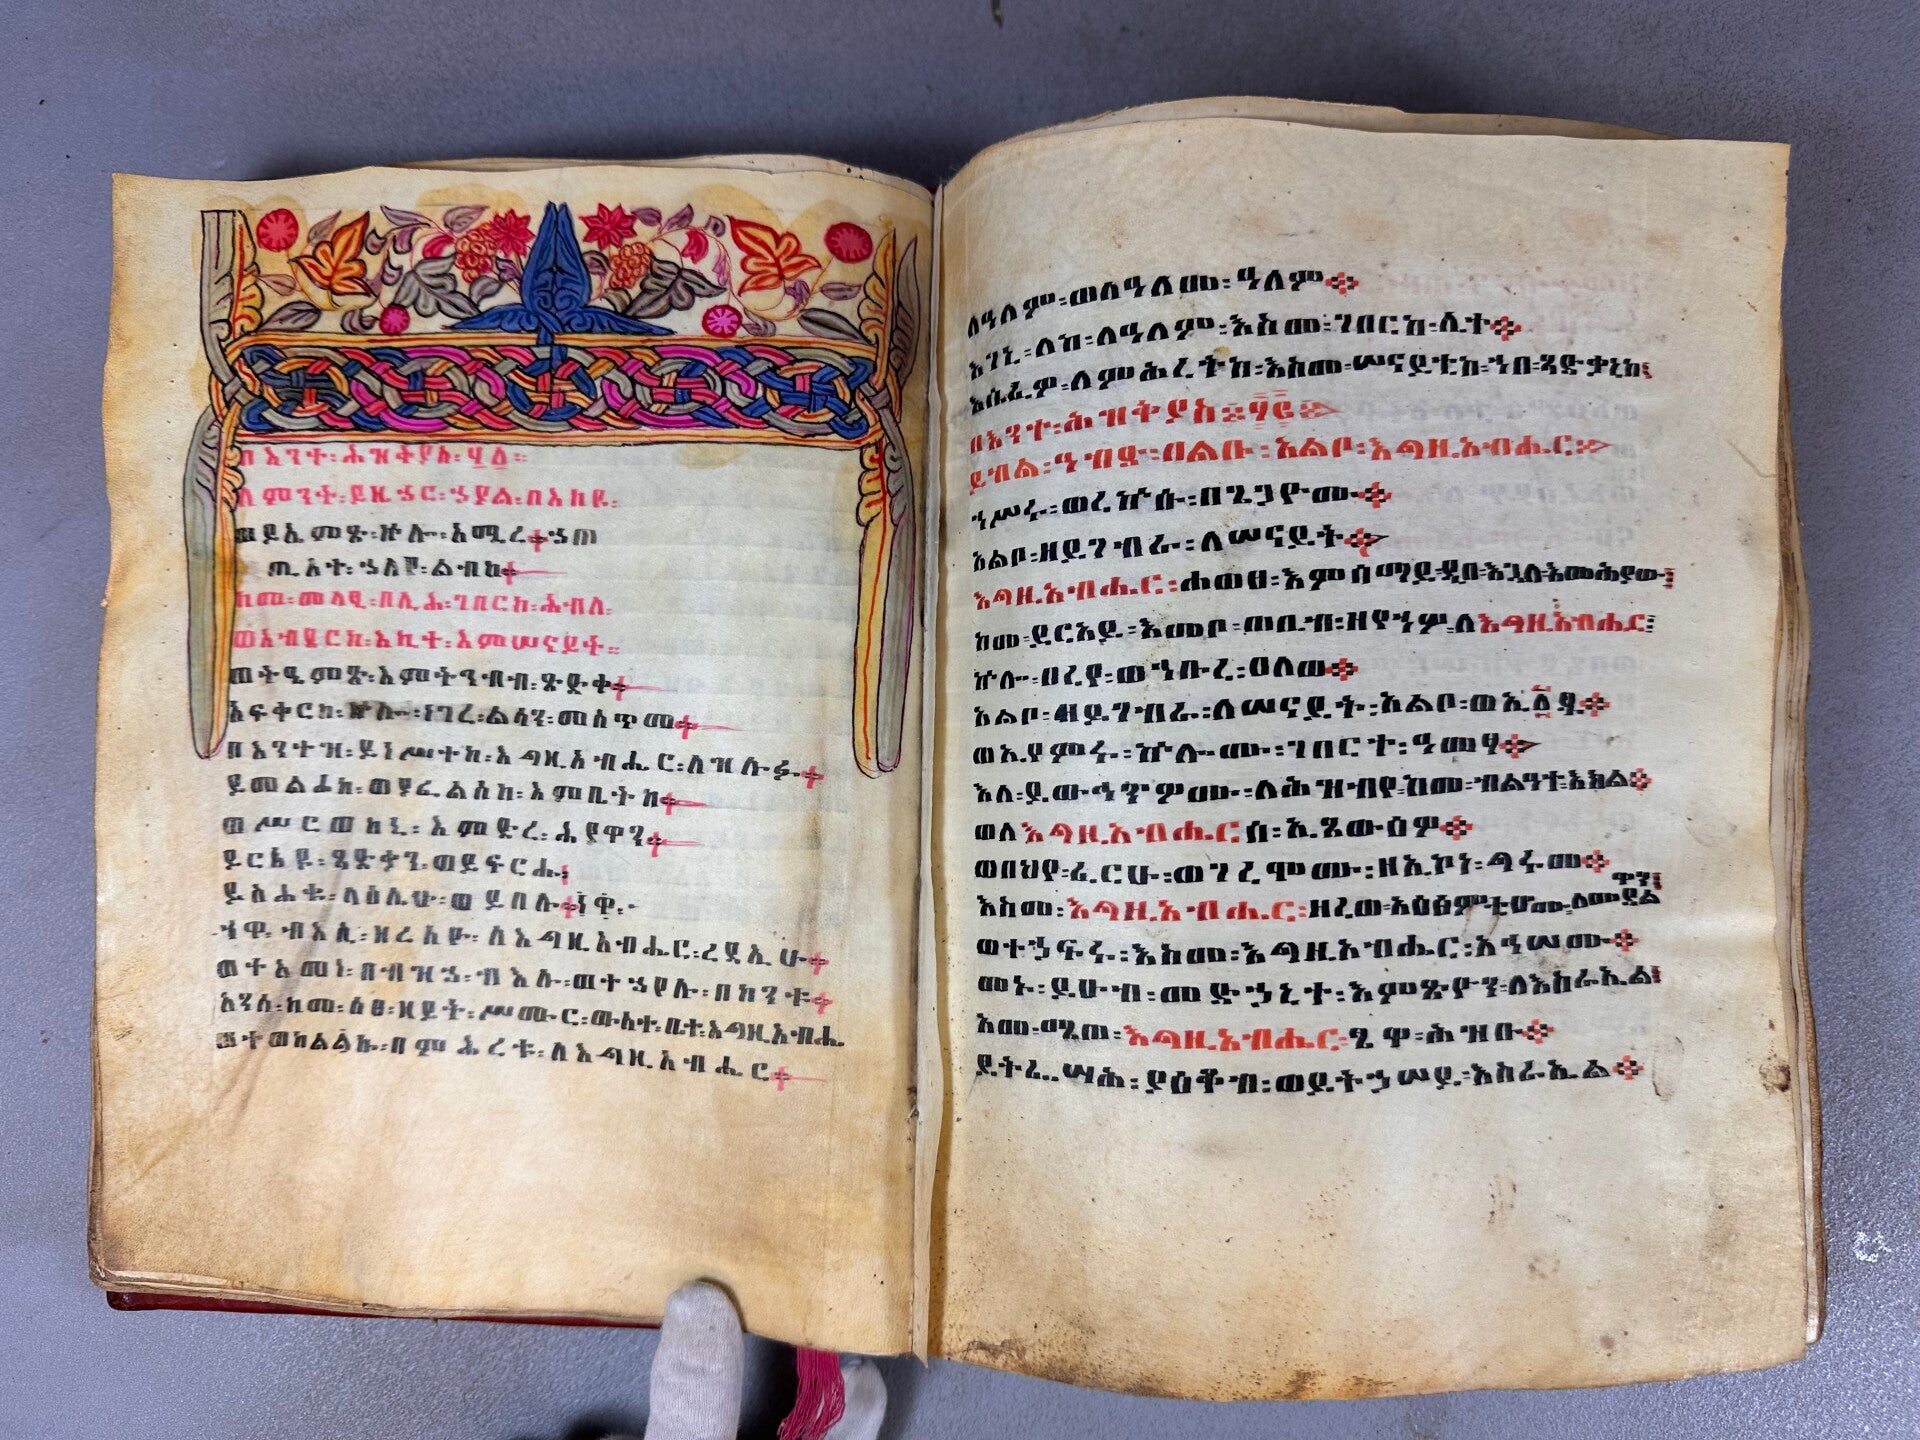 በእንተ፡ሕዝቅያስ፡
ለምንት፡ይዜኀር፡ኀያል፡በእከዩ፡
ወይኤምፅ፡ኵሎ፡አሚረ
ልብከ
ከመ፡መላፂ፡በሊሕ፡ገበርከ፡ሕብለ፡
ወአብደርከ፡እኪተ፡እምሠናይት።
ወትዔምፅ፡እምትንብብ፡ጽድቀ
አፍቀርከ፡ኵሎ፡ነገረ፡ልሳን፡መስጥመ
በእንተዝ፡ይነሥተከ፡እግዚአብሔር፡ለዝሉፉ
ይመልኀከ፡ወያፈልሰከ፡እምቤትከ
ወሥርወከኒ፡እምድረ፡ሕያዋን
ይርአዩ፡ጻድቃን፡ወይፍርሑ
ይስሕቁ፡ላዕሌሁ፡ወይበሉ
ነዋ፡ብእሲ፡ዘረአዮ፡ለእግዚአብሔር፡ረዳኢሁ
ወተአመነ፡በብዝኀ፡ብእሉ፡ወተኀየሉ፡በከንቱ
አንሰ፡ከመ፡ዕፀ፡ዘይት፡ሥሙር፡ውስተ፡ቤተ፡እግዚአብሔ
ወተወከልኩ፡በምሕረቱ፡ለእግዚአብሔር
ለዓለም፡ወለዓለመ፡ዓለም
እገኒ፡ለከ፡ለዓለም፡እስመ፡ገበርከ፡ሊተ
እሴፈዎ፡ለምሕረትከ፡እስመ፡ሠናይቲከ፡ኀበ፡ጻድቃኒከ
በእንተ፡ሕዝቅያስ
ይብል፡ዓብድ፡በልቡ፡አልቦ፡እግዚአብሔር
ኀሥሩ፡ወረኵሱ፡በጌጋዮሙ
አልቦ፡ዘይገብራ፡ለሠናይት
እግዚአብሔር፡ሐወፀ፡እምሰማይ፡ዲበ፡እጓለ፡እመሕያው
ከመ፡ይርአይ፡እመቦ፡ጠቢብ፡ዘየኀሥሦ፡ለእግዚአብሔር
ኵሉ፡ዐረየ፡ወኀቡረ፡ዐለወ
አልቦ፡ዘይገብራ፡ለሠናይት፡አልቦ፡ወኢ፩ዱ
ወኢየምሩ፡ኵሎሙ፡ገበርተ፡ዓመፃ
እለ፡ይውኅጥዎሙ፡ለሕዝብየ፡ከመ፡ብልዓተ፡እክል
ወለእግዚአብሔርሰ፡ኢጸውዕዎ
ወበህየ፡ፈርሁ፡ወገረሞሙ፡ዘኢኮነ፡ግሩመ
እስመ፡እግዚአብሔር፡ዘረወ፡አዕፅምቲሆሙ፡ለመደልዋን
ወተኀፍሩ፡እስመ፡እግዚአብሔር፡አኅሠሮሙ
መኑ፡ይሁብ፡መድኀኒተ፡እምጽዮን፡ለእስራኤል
አመ፡ሜጠ፡እግዚአብሔር፡ፄዋ፡ሕዝቡ
ይትፌሣሕ፡ያዕቆብ፡ወይትኀሠይ፡እስራኤል